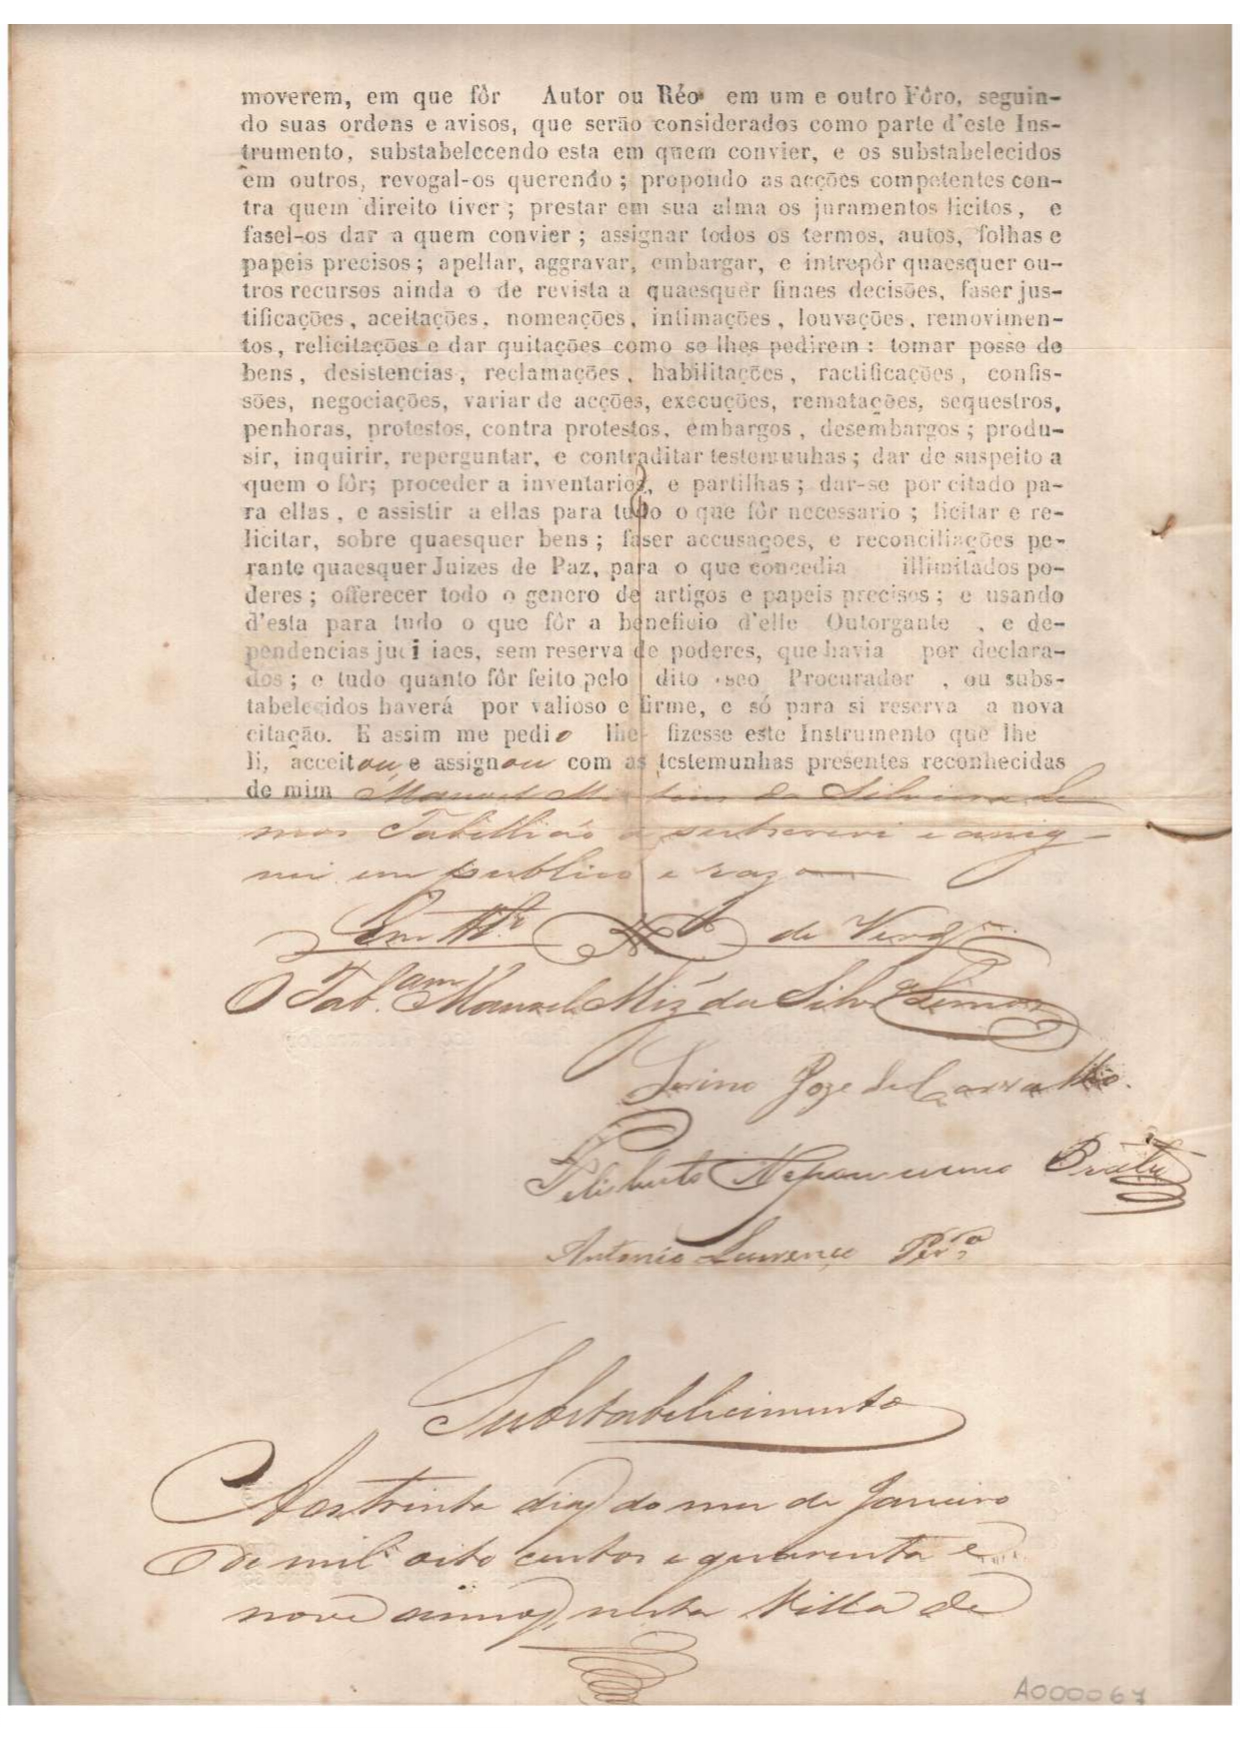 moverem, em que fôr Autor ou Réo em um e outro Fôro, seguin-
do suas ordens e avisos, que serão considerados como parte d'este Ins-
trumento, substabelecendo esta em quem convier, e os substabelecidos
em outros, revogal-os querendo; propondo as acções competentes con-
tra quem direito tiver; prestar em sua alma os juramentos licitos, e
fasel-os dar a quem convier; assignar todos os termos, autos, folhas e
papeis precisos; apellar, aggravar, embargar, e intrepôr quaesquer ou-
tros recursos ainda o de revista a quaesquer finaes decisões, faser jus-
tificações, aceitações, nomeações, intimações, louvações, removimen-
tos, relicitações e dar quitações como se lhes pedirem: tomar posse de
bens, desistencias, reclamações, habilitações, ractificações, confis-
sões, negociações, variar de acções, execuções, rematações, sequestros,
penhoras, protestos, contra protestos, embargos, desembargos; produ-
sir, inquirir, reperguntar, e contraditar testemunhas; dar de suspeito a
quem o fôr; proceder a inventarios, e partilhas; dar-se por citado pa-
ra ellas, e assistir a ellas para tudo o que fôr necessario; licitar e re-
licitar, sobre quaesquer bens; faser accusações, e reconciliações pe-
rante quaesquer Juizes de Paz, para o que concedia illimitados po-
deres; offerecer todo o genero de artigos e papeis precisos; e usando
d'esta para tudo o que fôr a beneficio d'elle Outorgante, e de-
pendencias judiciaes, sem reserva de poderes, que havia por declara-
dos; e tudo quanto fôr feito pelo dito seo Procurador, ou subs-
tabelecidos haverá por valioso e firme, e só para si reserva a nova
citação. E assim me pedio lhe fizesse este Instrumento que lhe
li, acceitou e assignou com as testemunhas presentes reconhecidas
de mim Manoel Martins da Silveira Le
mos Tabellião o subscrevi e assig-
nei em publico e razo
Em Ttº de Verdº
O Tab.am Manoel Miz da Silvª Lemos
Jozé de Carvalho.
Felisberto Nepomuceno Prates
Antonio Lourenço Perª
Substabelicimento
Aos trinta dias do mes de Janeiro
de mil oito centos e quarenta e
nove annos, nesta Villa de
A000067